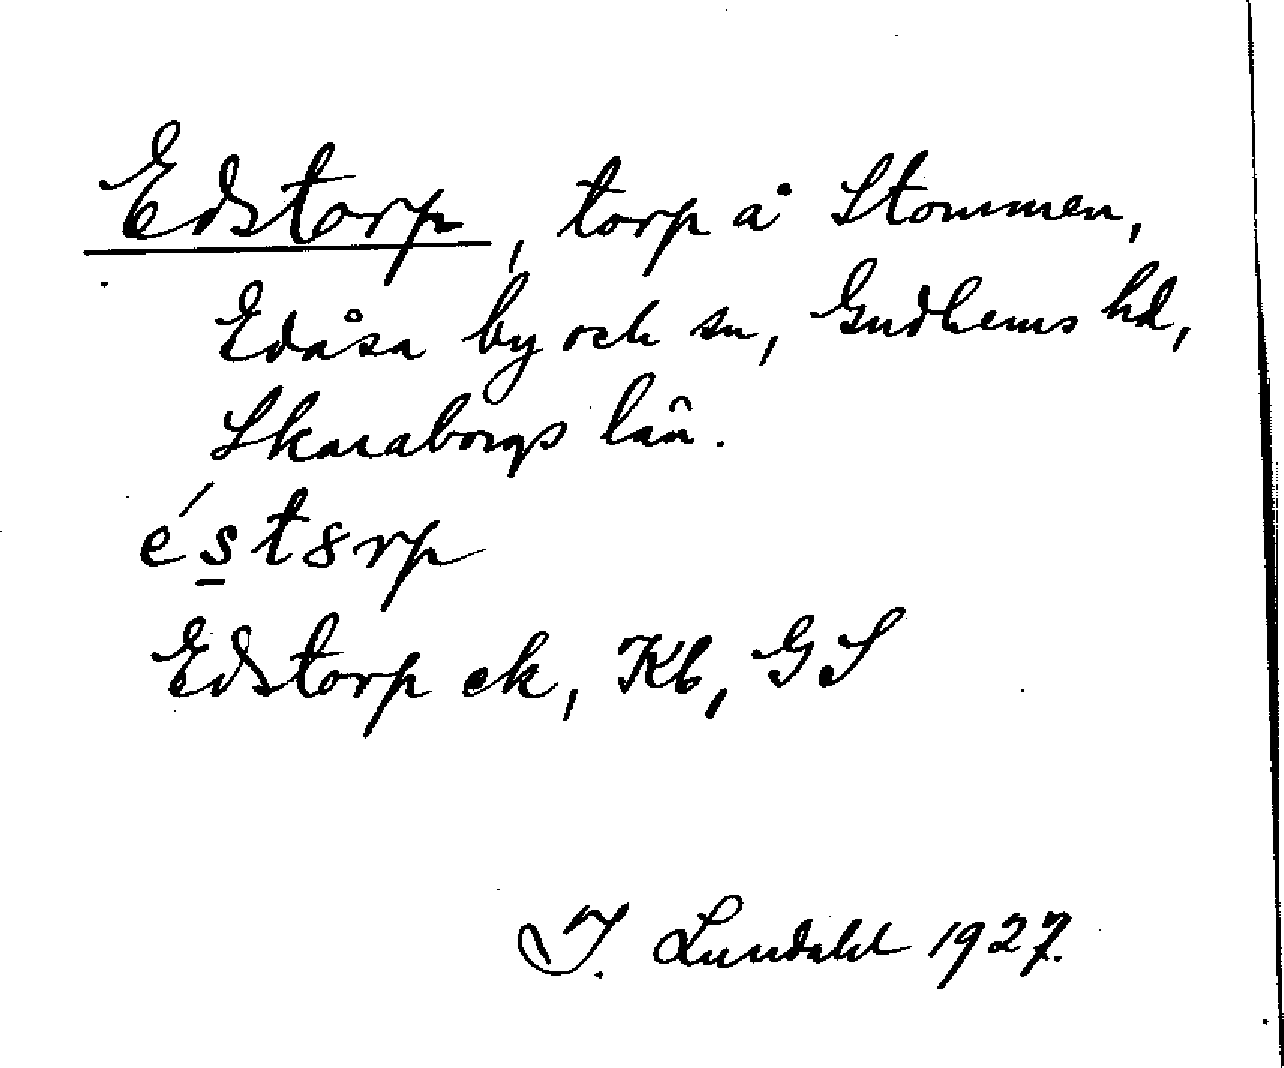 Edstorp, torp å Stommen,
Edåsa by och sn, Gudhems hd,
Skaraborgs län.
ést8rp
Edstorp ek, Kb, GS
I. Lundahl 1927.